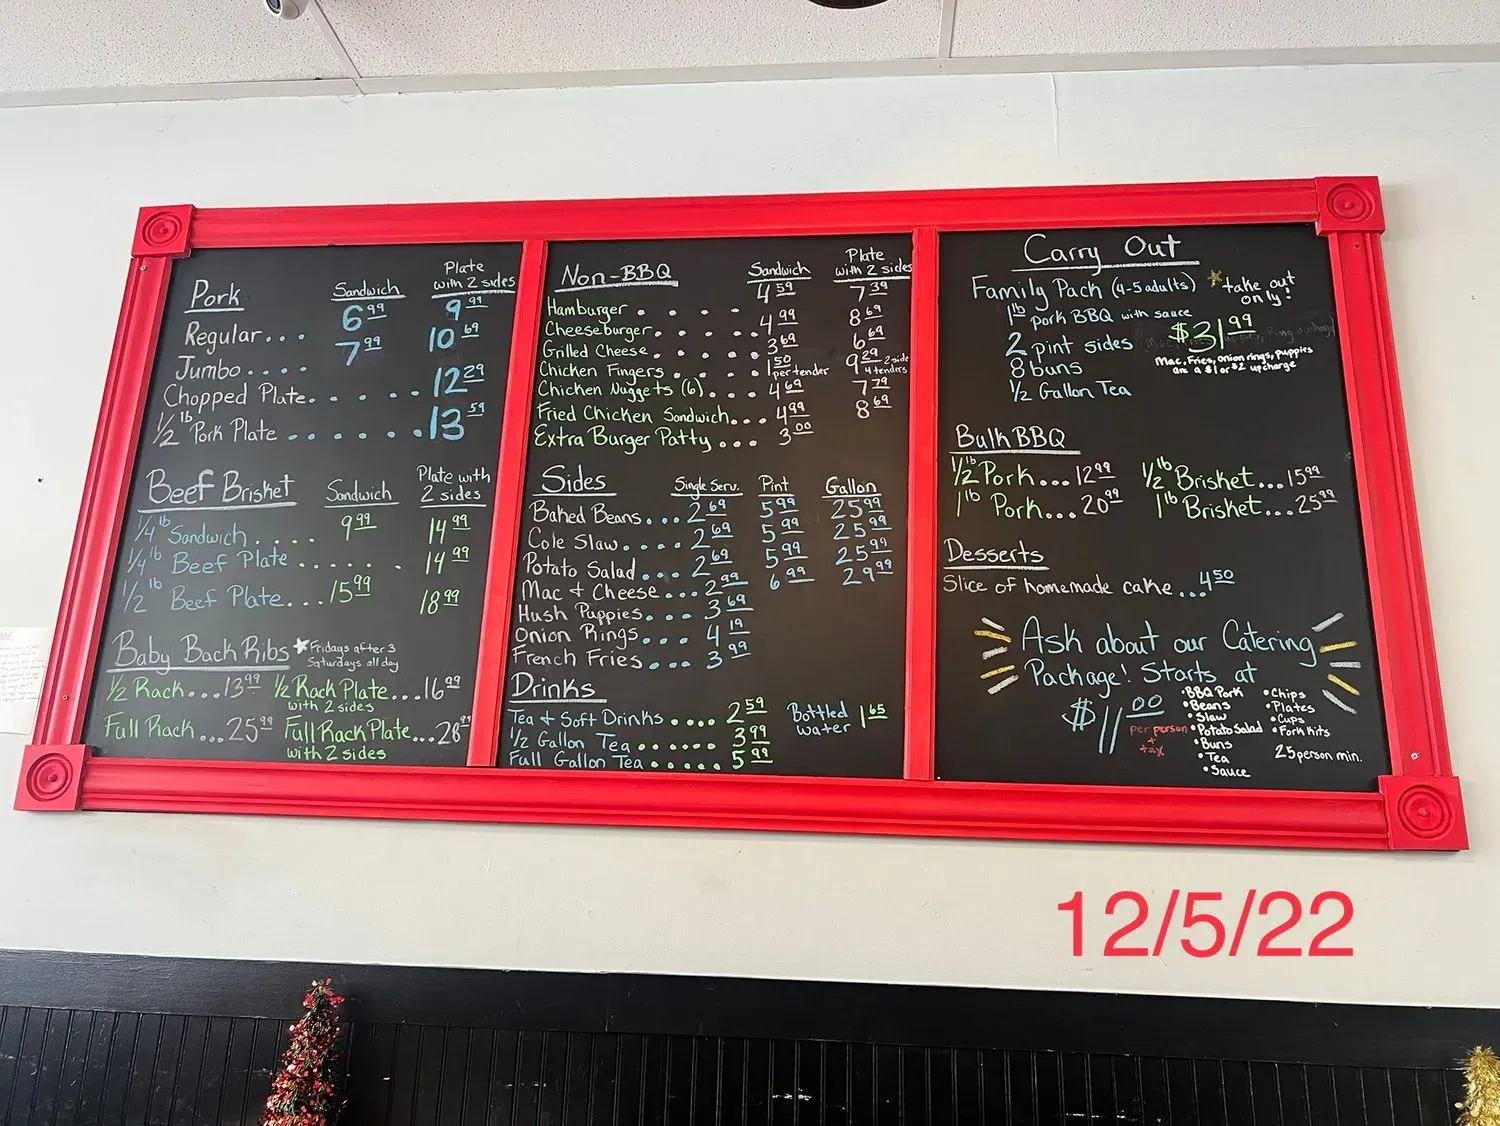 Pork Sandwich Plate with 2 sides
Regular... 6.99 9.99
Jumbo.... 7.99 10.69
Chopped Plate...... 12.29
1/2 lb Pork Plate...... 13.59
Beef Brisket Sandwich Plate with 2 sides
1/4 lb Sandwich.... 9.99 14.99
1/4 lb Beef Plate...... 14.99
1/2 lb Beef Plate... 15.99 18.99
Baby Back Ribs ★ Fridays after 3
Saturdays all day
1/2 Rack...13.99 1/2 Rack Plate...16.99
with 2 sides
Full Rack...25.99 Full Rack Plate...28.99
with 2 sides
Non-BBQ Sandwich Plate with 2 sides
Hamburger.... 4.59 7.39
Cheeseburger.... 4.99 8.69
Grilled Cheese.... 3.69 6.69
Chicken Fingers.... 1.50 per tender 9.29 2 side 4 tenders
Chicken Nuggets (6)... 4.69 7.79
Fried Chicken Sandwich... 4.99 8.69
Extra Burger Patty... 3.00
Sides Single Serv. Pint Gallon
Baked Beans... 2.69 5.99 25.99
Cole Slaw.... 2.69 5.99 25.99
Potato Salad... 2.69 5.99 25.99
Mac & Cheese... 2.99 6.99 29.99
Hush Puppies... 3.69
Onion Rings... 4.19
French Fries... 3.99
Drinks
Tea & Soft Drinks.... 2.59 Bottled water 1.65
1/2 Gallon Tea...... 3.99
Full Gallon Tea..... 5.99
Carry Out
Family Pack (4-5 adults) ★ take out only!
1 lb Pork BBQ with sauce
2 pint sides $31.99
8 buns Mac, Fries, onion rings, puppies
are a $1 or $2 upcharge
1/2 Gallon Tea
Bulk BBQ
1/2 lb Pork...12.99 1/2 lb Brisket...15.99
1 lb Pork...20.99 1 lb Brisket...25.99
Desserts
Slice of homemade cake...4.50
Ask about our Catering
Package! Starts at
$11.00 per person + tax
• BBQ Pork • Chips
• Beans • Plates
• Slaw • Cups
• Potato Salad • Fork Kits
• Buns
• Tea 25 person min.
• Sauce
12/5/22